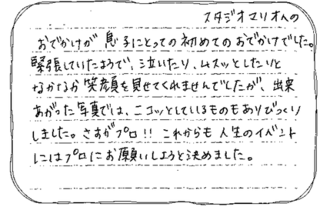 スタジオマリオへの
おでかけが息子にとっての初めてのおでかけでした。
緊張していたようで、泣いたり、ムスッとしたいと
なかなか笑顔を見せてくれませんでしたが、出来
あがった写真では、ニコッとしているものもありびっくり
しました。さすがプロ!! これからも人生のイベント
にはプロにお願いしようと決めました。